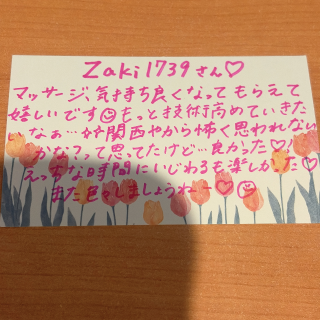 Zaki1739さん♡
マッサージ、気持ち良くなってもらえて
嬉しいです☺もっと技術高めていきた
いなぁ…関西やから怖く思われない
かな?って思ってたけど…良かった♡!
えっちな時間にいじわるも楽しかった♡
また色々しましょうねー♡☺